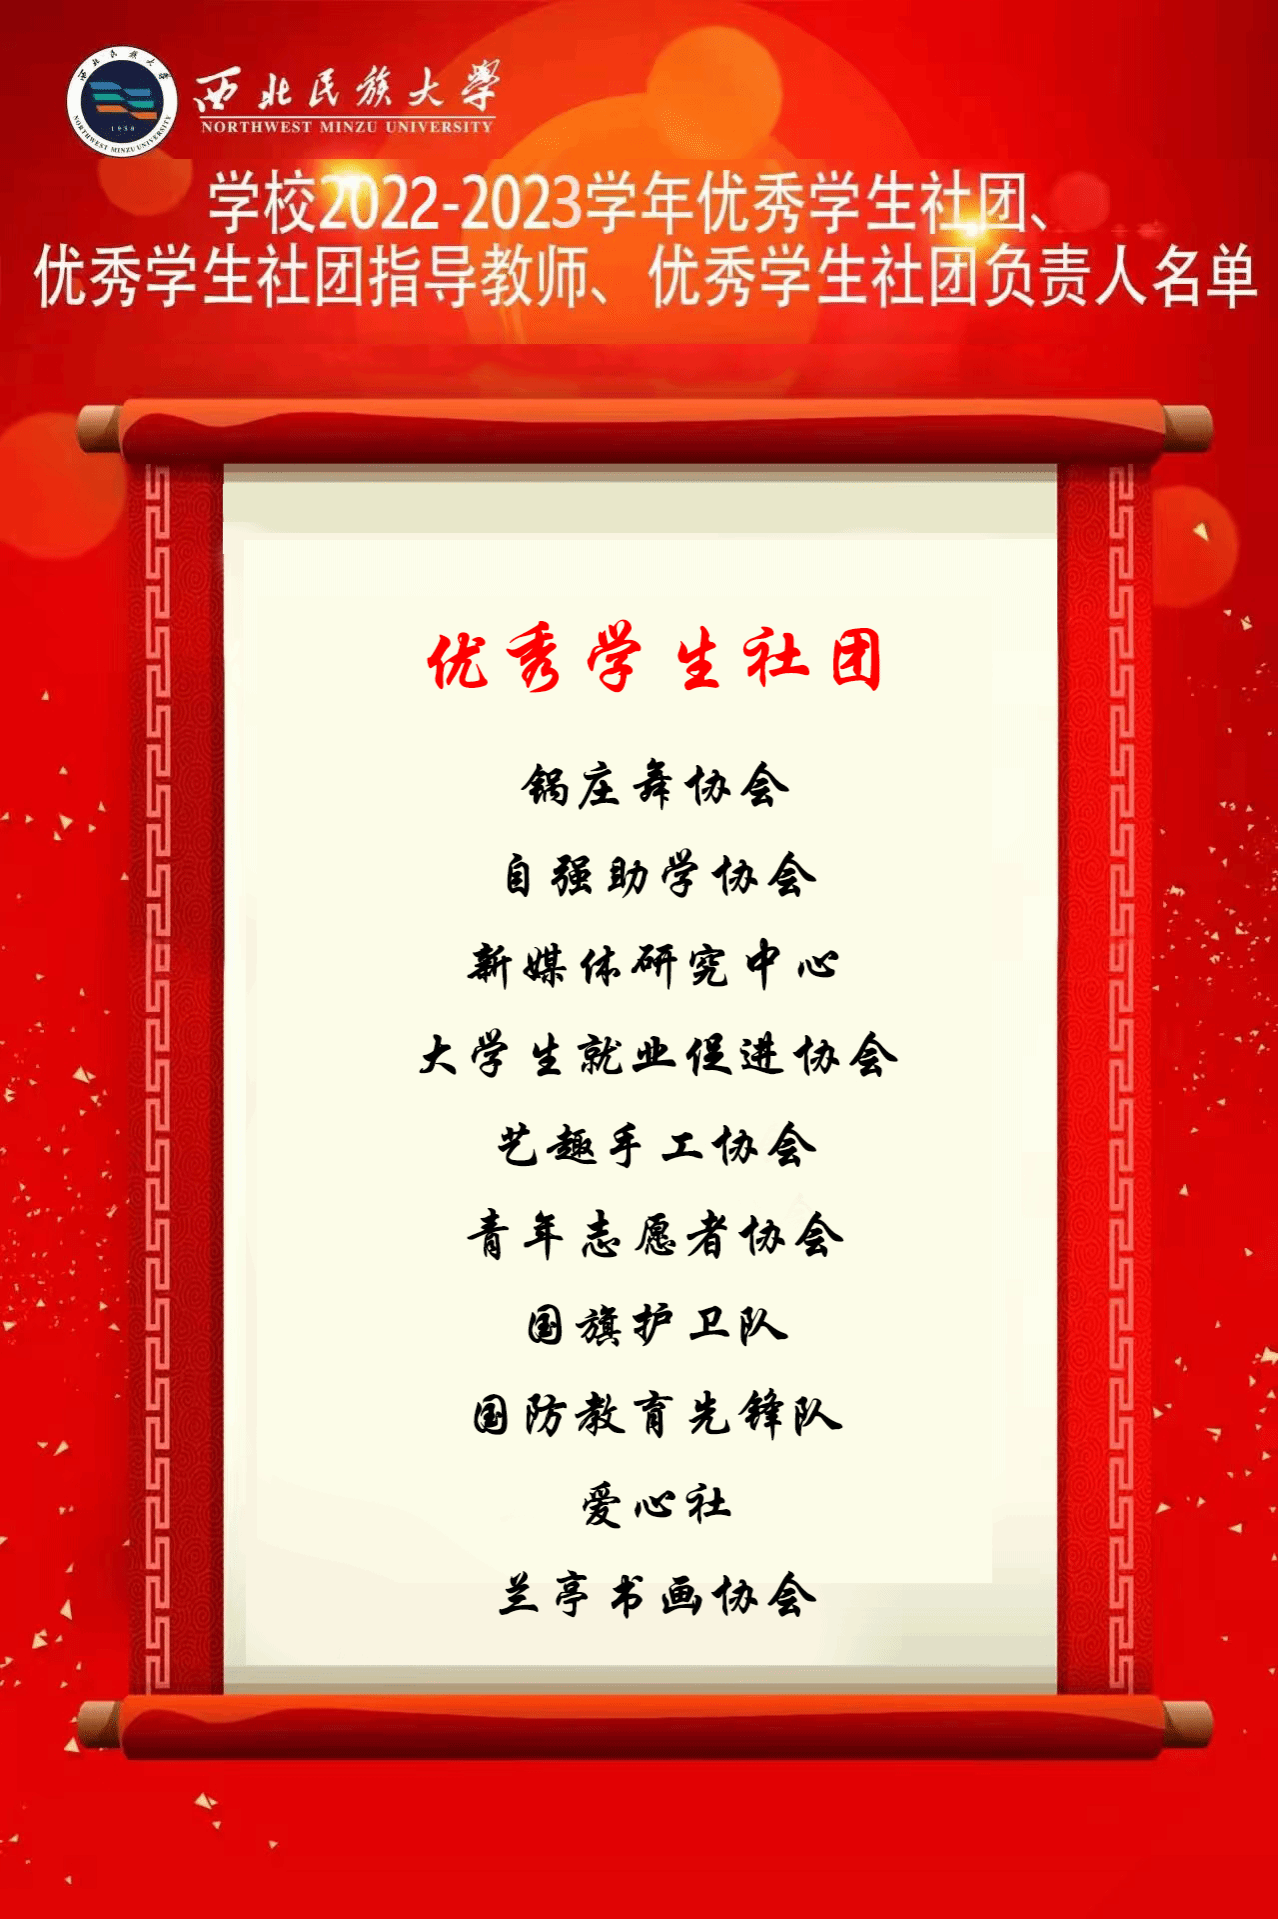 西北民族大学
1950
NORTHWEST MINZU UNIVERSITY
西北民族大學
NORTHWEST MINZU UNIVERSITY
学校2022-2023学年优秀学生社团、
优秀学生社团指导教师、优秀学生社团负责人名单
优秀学生社团
锅庄舞协会
自强助学协会
新媒体研究中心
大学生就业促进协会
艺趣手工协会
青年志愿者协会
国旗护卫队
国防教育先锋队
爱心社
兰亭书画协会